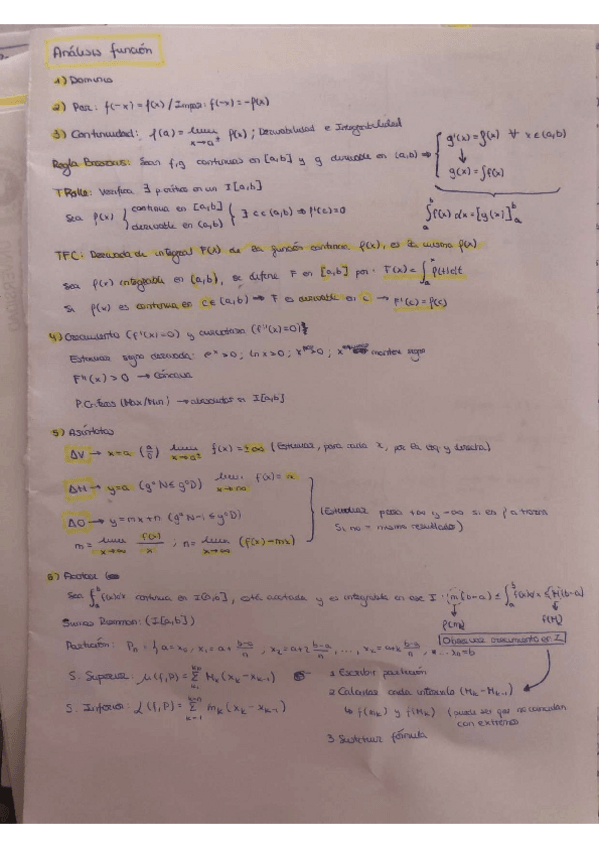 Análisis función
1) Dominio
2) Par: f(-x)=f(x) / Impar: f(-x)=-f(x)
3) Continuidad: f(a)= lim x→a± f(x); Derivabilidad e Integrabilidad
Regla Barrow: Sean f,g continuas en [a,b] y g derivable en (a,b) ⇒ { g'(x)=f(x) ∀ x∈(a,b)
↓
g(x)=∫f(x)
T Rolle: Verifica ∃ ptos en un I[a,b]
Sea f(x) { continua en [a,b]
derivable en (a,b) } ∃ c∈(a,b) ⇒ f'(c)=0
∫_a^b f(x) dx = [g(x)]_a^b
TFC: Derivada de integral F(x) de la función continua f(x), es la misma f(x)
Sea f(x) integrable en (a,b), se define F en [a,b] por: F(x)=∫_a^x f(t)dt
Si f(x) es continua en c∈(a,b) ⇒ F es derivable en c → F'(c)=f(c)
4) Crecimiento (f'(x)=0) y curvatura (f''(x)=0)
Estudiar signo derivada: e^x>0; ln x>0; mantener signo
F''(x)>0 → Cóncava
(Max/Min) → absolutos en I[a,b]
5) Asíntotas
AV → x=a (a/0) lim x→a± f(x)=±∞ (Estudiar, para cada x, por la izq y derecha)
AH → y=a (gºN≤gºD) lim x→±∞ f(x)=
AO → y=mx+n (gºN-1≤gºD)
m= lim x→±∞ f(x)/x ; n= lim x→±∞ (f(x)-mx)
(Estudiar para +∞ y -∞ si es f a trozos
Si no = mismo resultado)
6) Acotar
Sea ∫_a^b f(x)dx continua en I[a,b], está acotada y es integrable en ese I: m(b-a) ≤ ∫_a^b f(x)dx ≤ M(b-a)
f(m) f(M)
Sumas Riemann: (I[a,b])
Observar crecimiento en I
Partición: Pn = {a=x₀, x₁=a+ b-a/n, x₂=a+2 b-a/n, ..., x_k=a+k b-a/n, ... x_n=b
S. Superior: μ(f,P)= Σ M_k(x_k-x_k-1)
S. Inferior: L(f,P)= Σ k=1 m_k(x_k-x_k-1)
1 Escribir partición
2 Calcular cada intervalo (M_k-M_k-1)
↳ f(m_k) y f(M_k) (puede ser que no coincidan con extremos
3 Sustituir fórmula